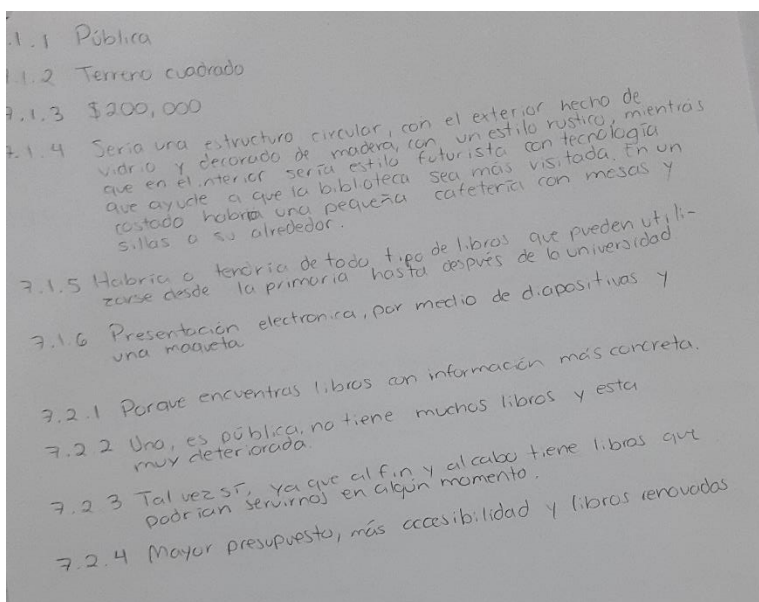 .1.1 Pública
1.1.2 Terreno cuadrado
7.1.3 $200,000
7.1.4 Sería una estructura circular, con el exterior hecho de
vidrio y decorado de madera, con un estilo rustico, mientras
que en el interior sería estilo futurista con tecnología
que ayude a que la biblioteca sea más visitada. En un
costado habría una pequeña cafetería con mesas y
sillas a su alrededor.
7.1.5 Habría o tendría de todo tipo de libros que pueden utili-
zarse desde la primaria hasta después de la universidad
7.1.6 Presentación electronica, por medio de diapositivas y
una maqueta
7.2.1 Porque encuentras libros con información más concreta.
7.2 2 Una, es pública, no tiene muchos libros y esta
muy deteriorada.
7.2.3 Tal vez sí, ya que al fin y al cabo tiene libros que
podrian servirnos en algún momento.
7.2.4 Mayor presupuesto, más accesibilidad y libros renovados